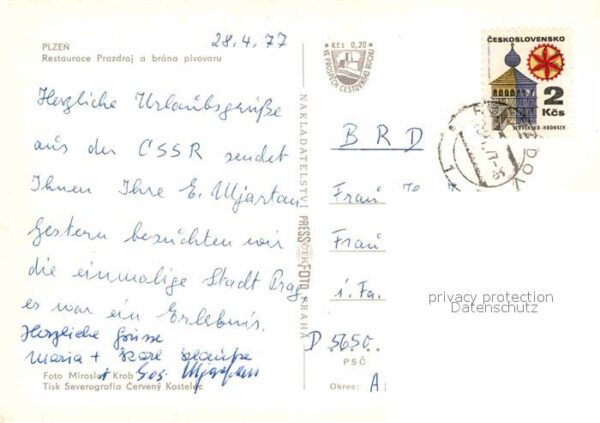 PLZEŇ
Restaurace Prazdroj a brána pivovaru
28.4.77
Herzliche Urlaubsgrüße
aus der ČSSR sendet
Ihnen Ihre E. Mjartan
Gestern besuchten wir
die einmalige Stadt Prag,
es war ein Erlebnis.
Herzliche Grüsse
Maria + Karl
Foto Miroslav Krob
Tisk Severografia Červený Kostelec
NAKLADATELSTVÍ PRESSFOTO PRAHA
ČTK
Kčs 0,20
VE PROSPĚCH CESTOVNÍHO RUCHU
ČESKOSLOVENSKO
2
Kčs
SLOVENSKO-HRONSEK
BRD
Frau
Frau
i. Fa.
D 5650
PSČ
Okres: A
privacy protection
Datenschutz